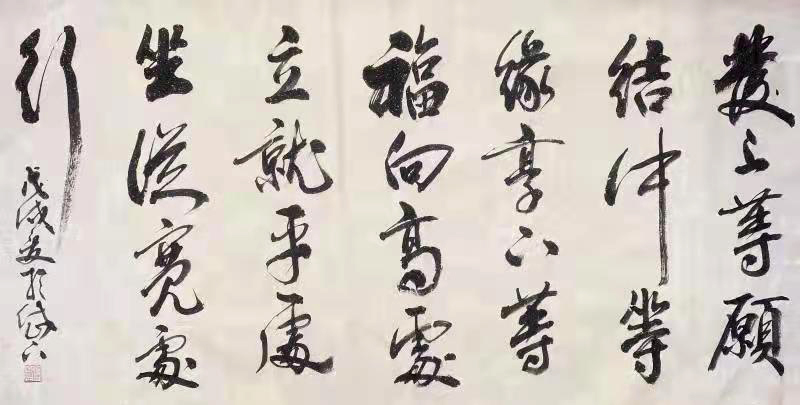 發上等願
結中等
緣享下等
福向高處
立就平處
坐從寬處
行
戊戌夏於岱下